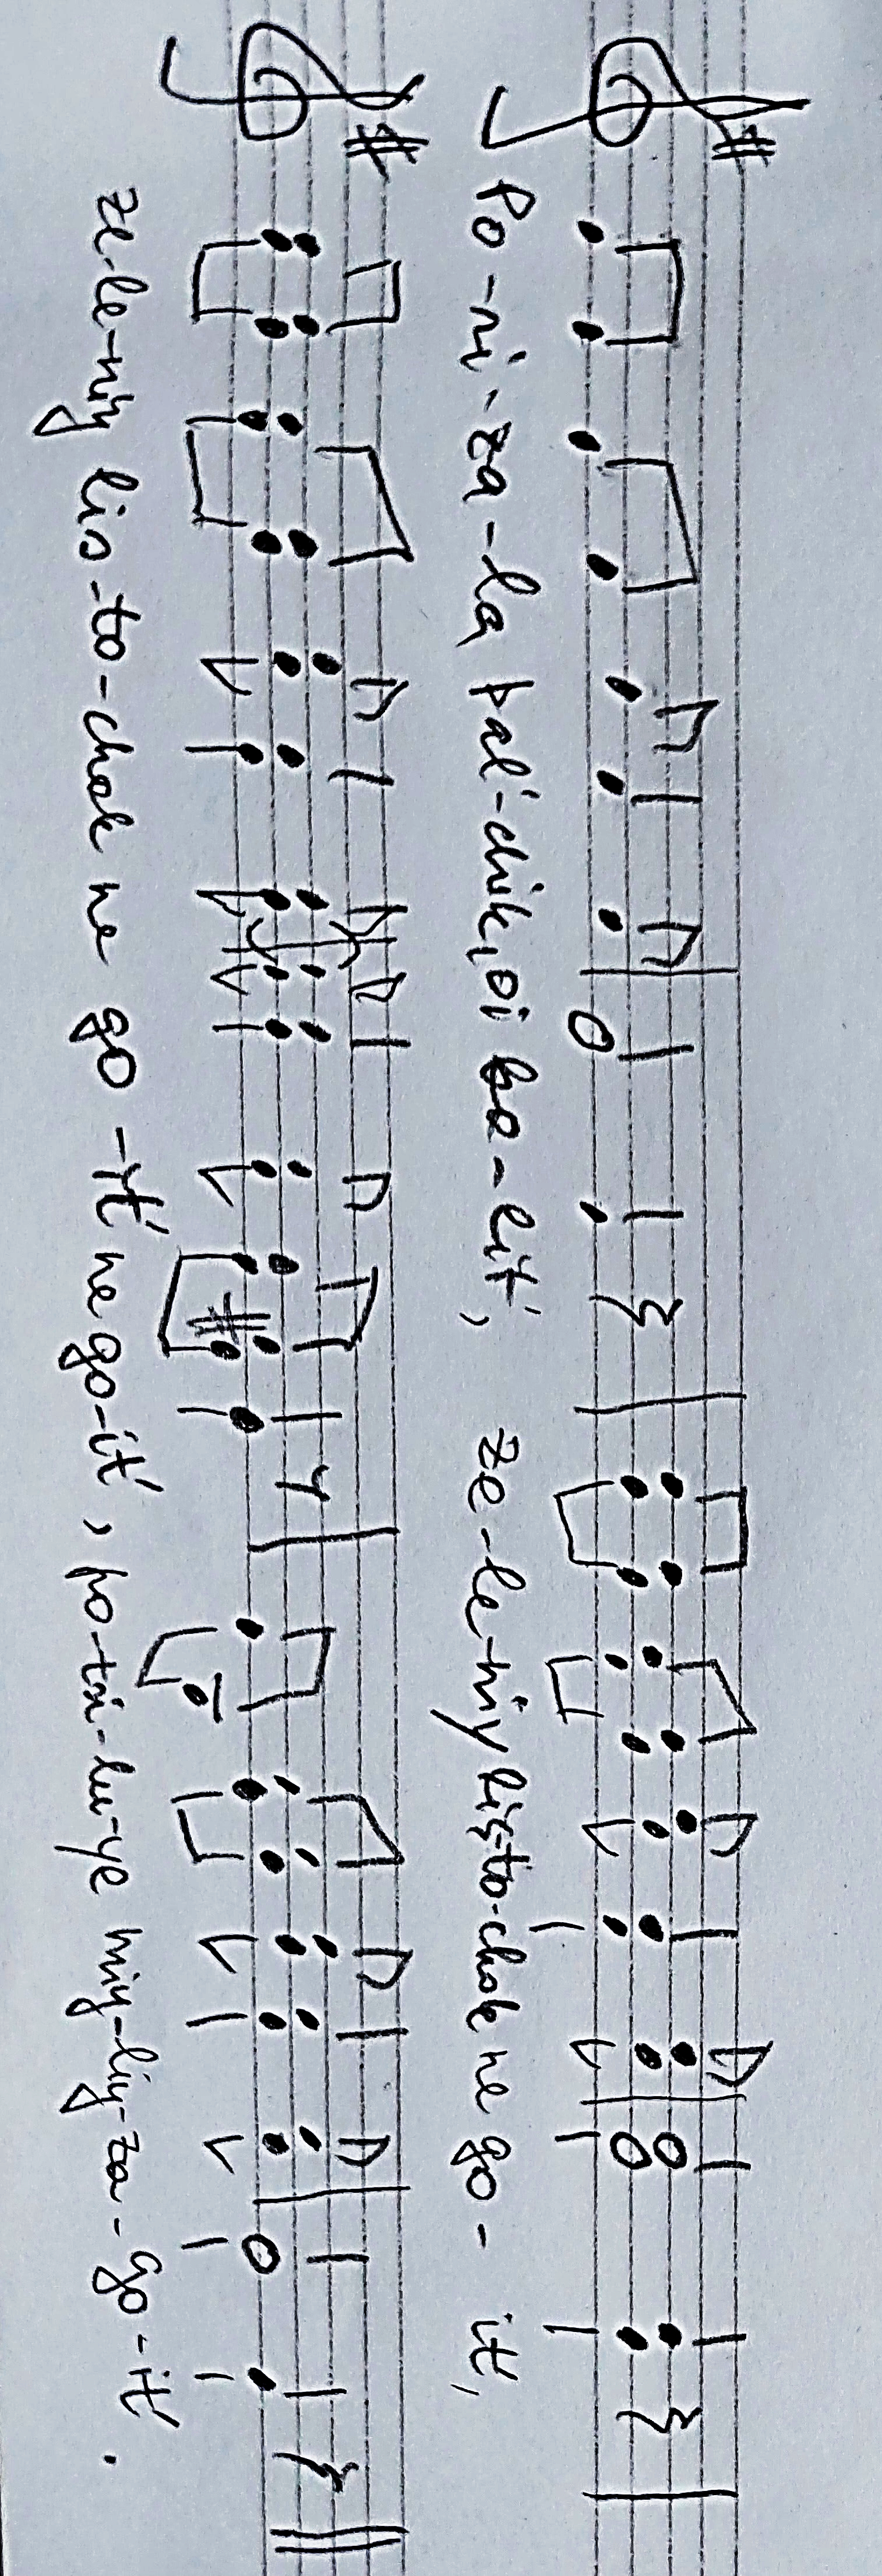 Po-ri-za-la pal'-chik, oi bo-lit', ze-le-niy lis-to-chok ne go-it,
ze-le-niy lis-to-chok ne go-it' ne go-it', po-tsi-lu-ye miy-liy-za-go-it'.